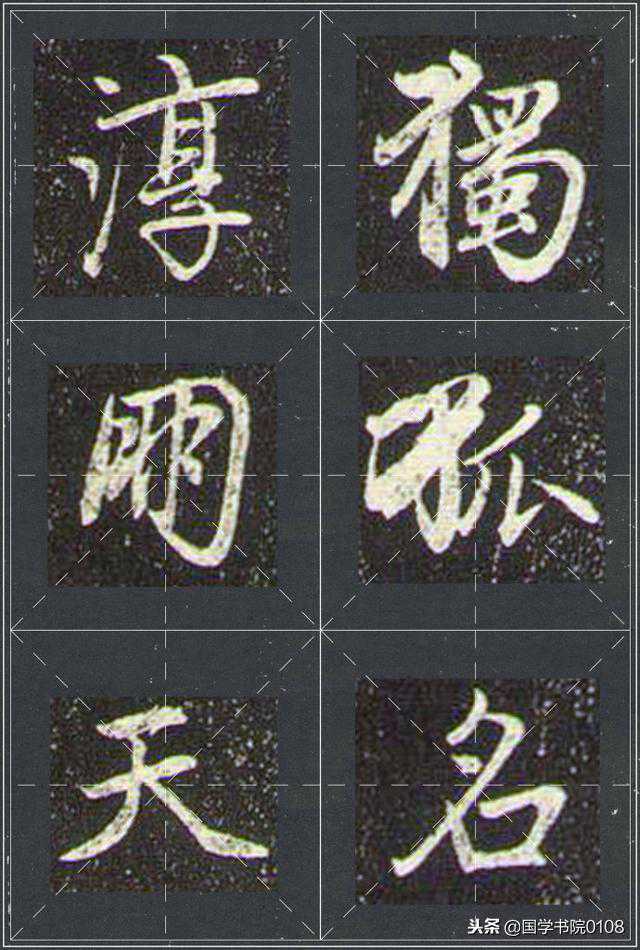 獨
名
淳
明
天
头条 @国学书院0108